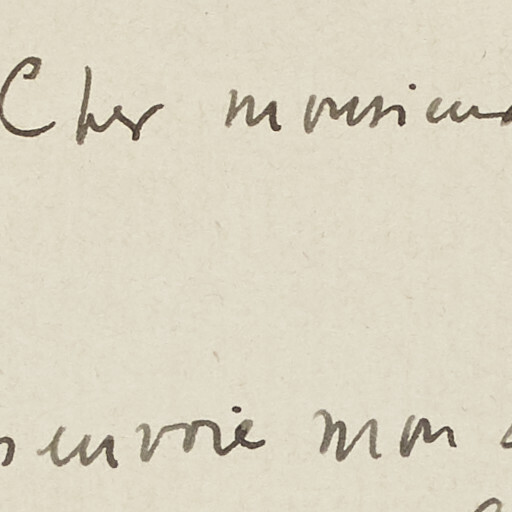 Cher monsieur
envoie mon